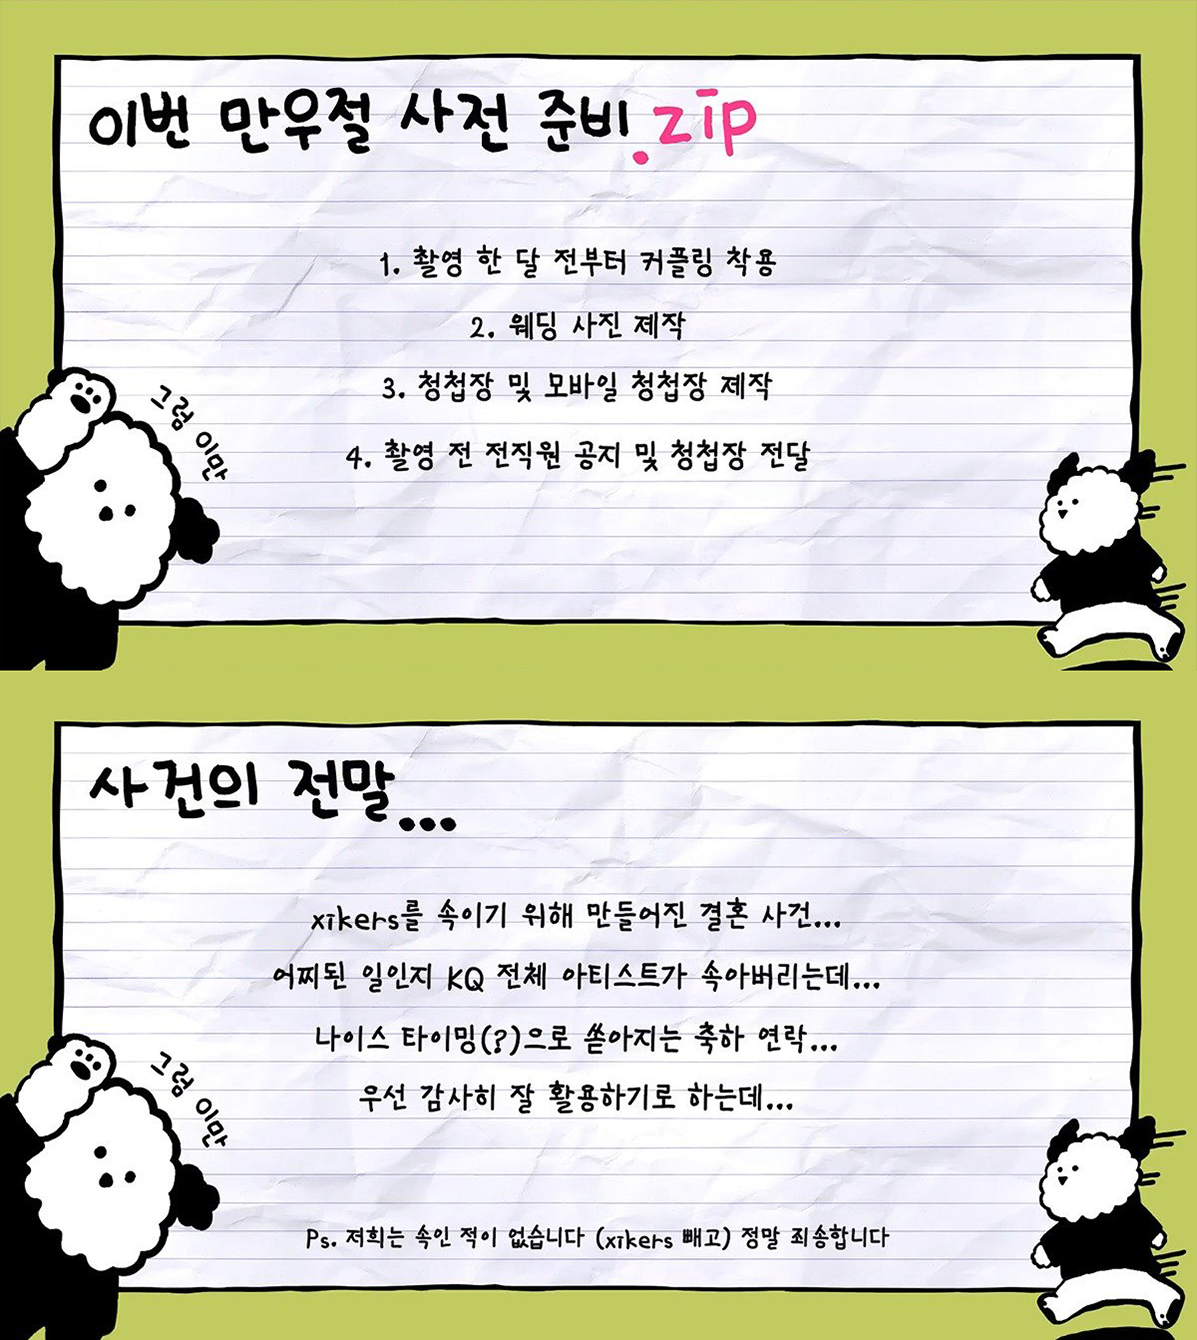 이번 만우절 사전 준비.zip
1. 촬영 한 달 전부터 커플링 착용
2. 웨딩 사진 제작
3. 청첩장 및 모바일 청첩장 제작
4. 촬영 전 전직원 공지 및 청첩장 전달
그럼 이만
사건의 전말...
xikers를 속이기 위해 만들어진 결혼 사건...
어찌된 일인지 KQ 전체 아티스트가 속아버리는데...
나이스 타이밍(?)으로 쏟아지는 축하 연락...
우선 감사히 잘 활용하기로 하는데...
그럼 이만
Ps. 저희는 속인 적이 없습니다 (xikers 빼고) 정말 죄송합니다